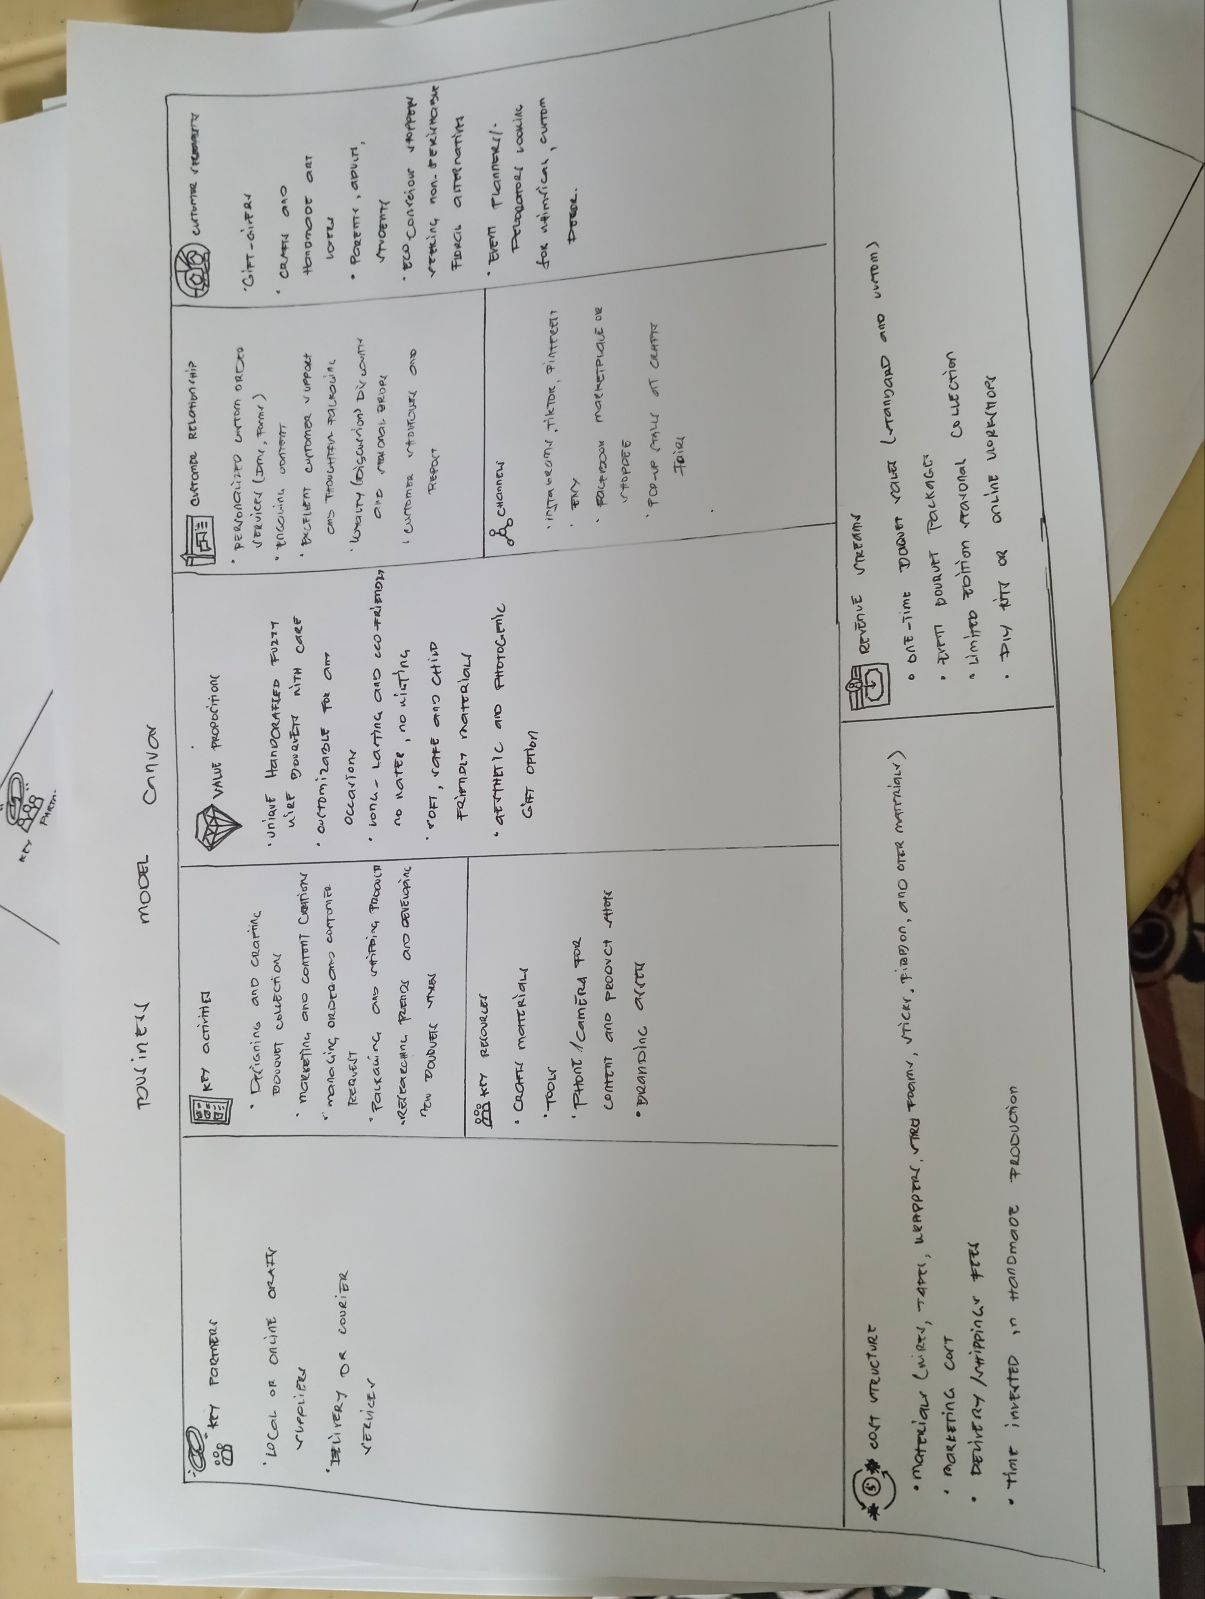 KEY
PARTN
BUSINESS MODEL Canvas
KEY PARTNERS
• LOCAL OR ONLINE CRAFTS
SUPPLIERS
• DELIVERY OR COURIER
SERVICES
KEY activities
• DESigning AND crafting
BOUQUET COLLECTION
• marketing and content creation
• managing ORDER and CUSTOMER
REQUEST
• Packaging and shipping product
• RESEARCHING TRENDS and DEVELOPING
NEW BOUQUETS styles
KEY RESOURCES
• CRAFTS MATERIALS
• TOOLS
• PHONE/CAMERA FOR
CONTENT and PRODUCT shots
• Branding assets
VALUE PROPOSITIONS
• UNIQUE HANDCRAFTED FUZZY
WIRE BOUQUETS WITH CARE
• CUSTOMIZABLE FOR any
occasions
• LONG-LASTING and eco-FRIENDLY
no WATER, no WILTING
• SOFT, SAFE and CHILD
FRIENDLY MATERIALS
• AESTHETIC and PHOTOGENIC
GIFT OPTION
CUSTOMER RELATIONSHIP
• PERSONALIZED custom ORDER
SERVICES (Dms, Forms)
• ENGOUING content
• EXCELLENT CUSTOMER SUPPORT
and THOUGHTFUL PACKAGING
• LOYALTY DISCOUNTS
AND SEASONAL DROPS
• CUSTOMER SHOUTOUTS AND
REPORT
CHANNELS
• INSTAGRAMS, TIKTOK, PINTEREST
•
• FACEBOOK MARKETPLACE OR
SHOPEE
• POP-UP STALLS AT CRAFTS
Fairs
CUSTOMER SEGMENTS
• GIFT-GIVERS
• CRAFTS AND
HANDMADE ART
LOVERS
• PARENTS, ADULTS,
STUDENTS
• ECO conscious SHOPPERS
SEEKING non-PERISHABLE
FLORAL alternatives
• EVENT PLANNERS/
DECORATORS LOOKING
for whimsical, custom
DECOR.
COST STRUCTURE
• MATERIALS (WIRES, TAPES, WRAPPERS, STYRO FOAMS, STICKS, RIBBON, AND OTER MATERIALS)
• MARKETING COST
• DELIVERY/SHIPPINGS FEES
• TIME INVESTED in HANDMADE PRODUCTION
REVENUE STREAMS
• ONE-TIME BOQUET SALES (STANDARD and CUSTOM)
• EVENT BOUQUET PACKAGES
• LIMITED EDITION SEASONAL COLLECTION
• DIY KITS OR ONLINE WORKSHOPS